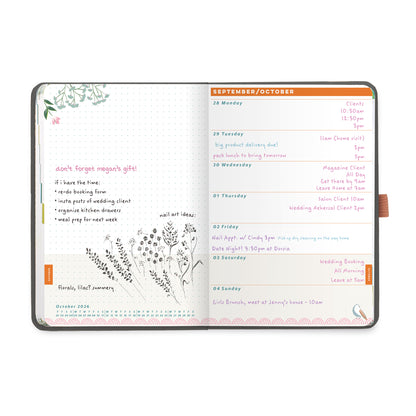 don't forget megan's gift!
if i have the time:
• re-do booking form
• insta posts of wedding client
• organise kitchen drawers
• meal prep for next week
nail art ideas:
florals, lilac? summery
October 2026
SEPTEMBER/OCTOBER
28 Monday
Clients
10am
12:30pm
3pm
29 Tuesday
11am (home visit)
big product delivery due!
1pm
pack lunch to bring tomorrow
3pm
30 Wednesday
Magazine Client
All Day
Get there by 9am
Leave home at 7am
01 Thursday
Salon Client 10am
Wedding Rehearsal Client 2pm
02 Friday
Nail Appt. w/ Cindy 3pm
Pick up dry cleaning on the way home
Date Night! 8:30pm at Dorsia
03 Saturday
Wedding Booking
All Morning
Leave at 5am
04 Sunday
Girls Brunch, meet at Jenny's house - 10am